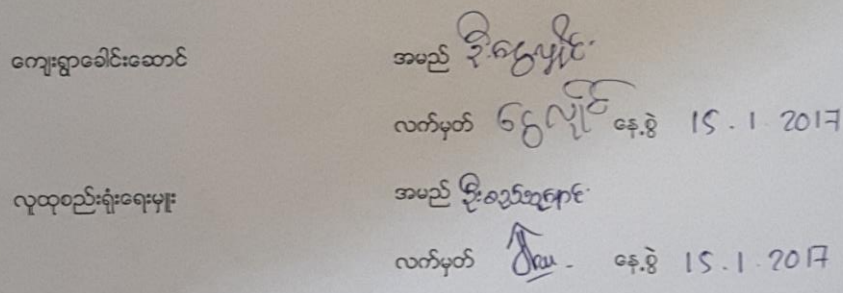 ကျေးရွာခေါင်းဆောင် အမည် ဦးငွေလှိုင်
လက်မှတ် ငွေလှိုင် နေ့စွဲ 15.1.2017
လူထုစည်းရုံးရေးမှူး အမည် ဦး
လက်မှတ် နေ့စွဲ 15.1.2017